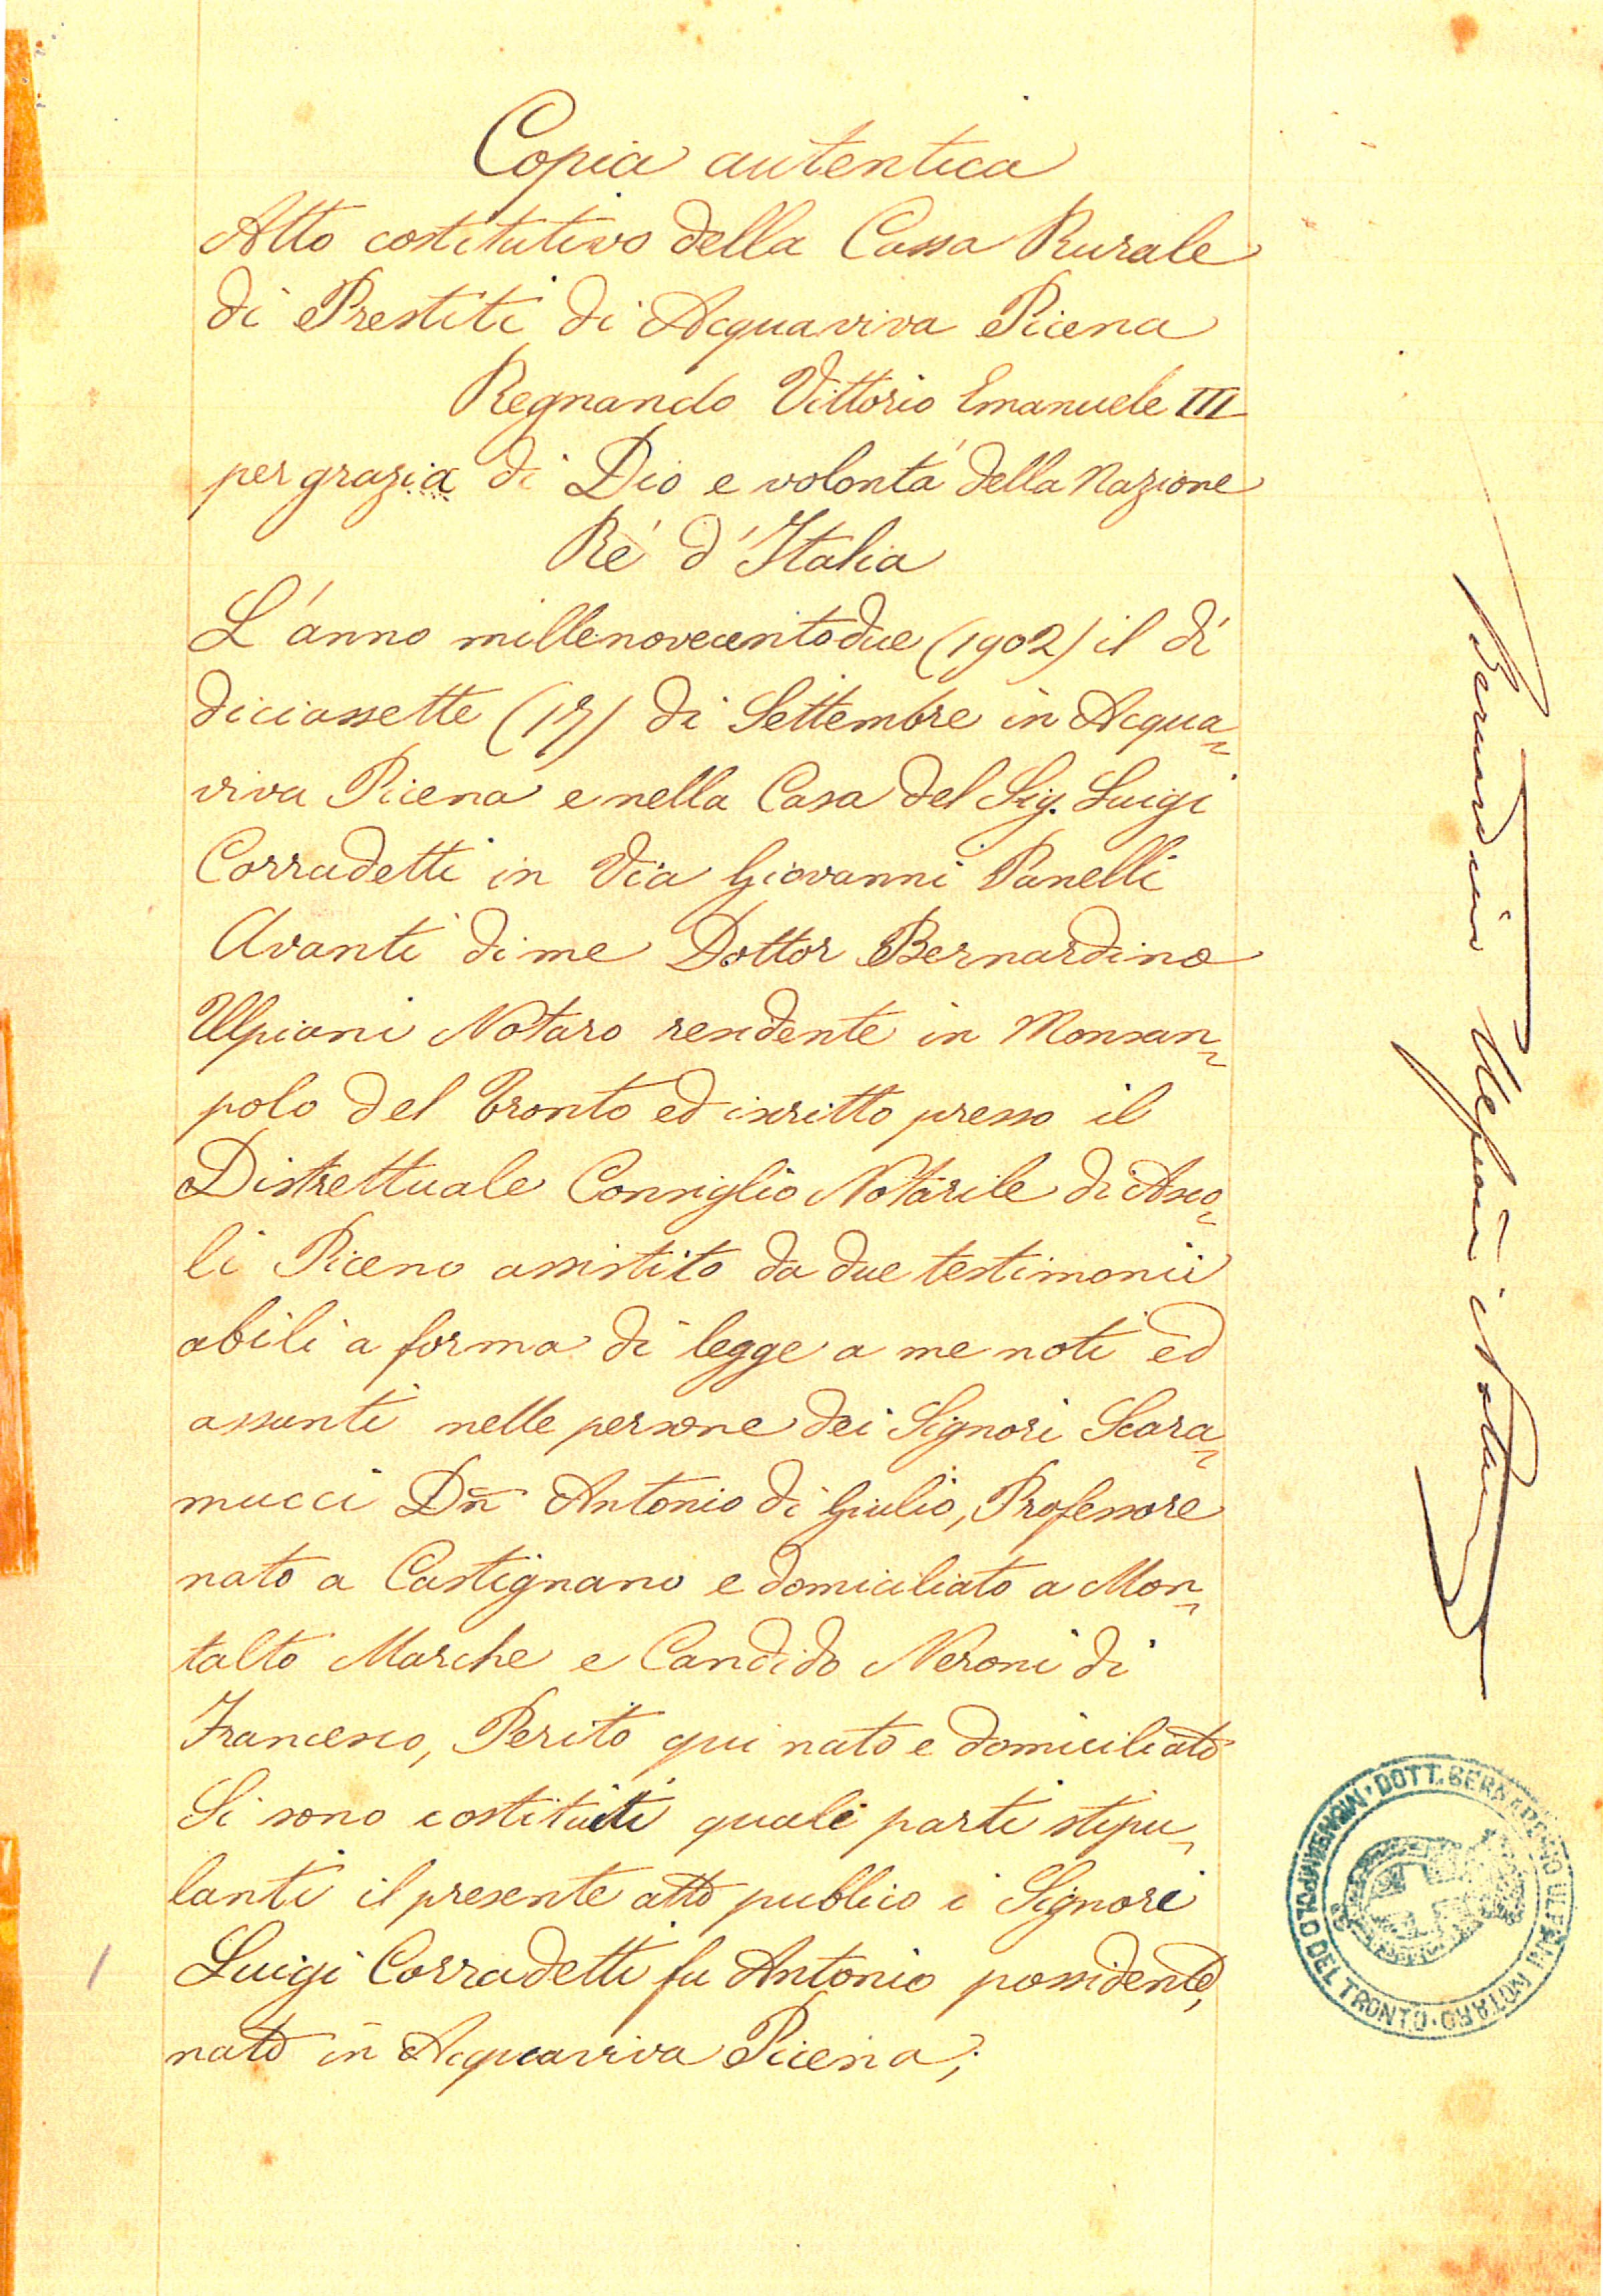 Copia autentica
Atto costitutivo della Cassa Rurale
di Prestiti di Acquaviva Picena
Regnando Vittorio Emanuele III
per grazia di Dio e volontá della Nazione
Ré d'Italia
L'anno millenovecentodue (1902) il dí
diciassette (17) di Settembre in Acqua-
viva Picena e nella Casa del Sig. Luigi
Corradetti in Via Giovanni Panelli
Avanti di me Dottor Bernardino
Ulpiani Notaro residente in Monsan-
polo del Tronto ed iscritto presso il
Distrettuale Consiglio Notarile di Asco-
li Piceno assistito da due testimonii
abili a forma di legge a me noti ed
assunti nelle persone dei Signori Scara-
mucci Dn Antonio di Giulio, Professore
nato a Castignano e domiciliato a Mon-
talto Marche e Candido Neroni di
Francesco, Perito qui nato e domiciliato
Si sono costituiti quali parti stipu-
lanti il presente atto publico i Signori
Luigi Corradetti fu Antonio possidente,
nato in Acquaviva Picena;
Bernardino Ulpiani Notaro
DOTT. BERNARDINO ULPIANI NOTARO
DEL TRONTO